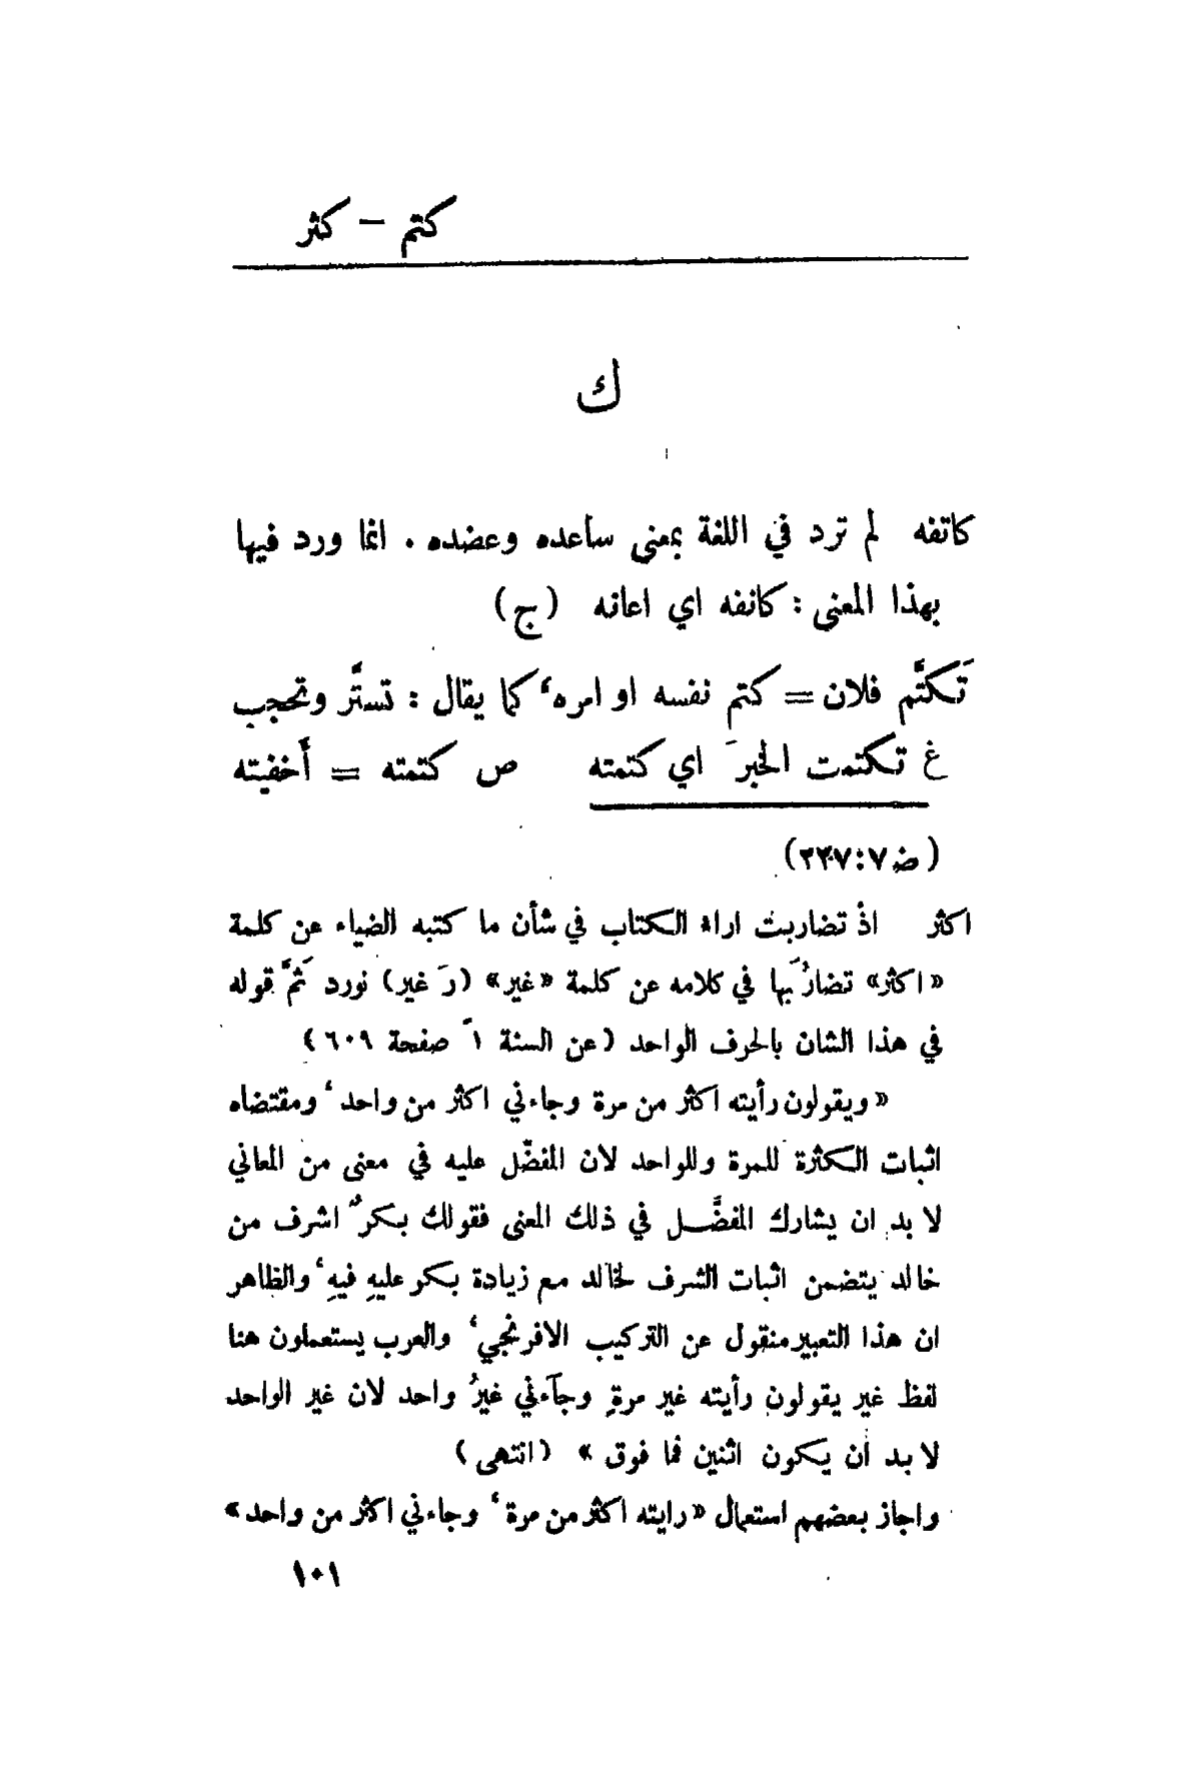 كتم – كثر
ك
كاتفه لم ترد في اللغة بمعنى ساعده وعضده . انما ورد فيها
بهذا المعنى : كانفه اي اعانه (ج)
تَكتَّم فلان = كتم نفسه او امره، كما يقال : تستَّر وتحجب
غ تكتمت الخبرَ اي كتمته ص كتمته = أخفيته
(ض٧:٢٢٧)
اكثر اذ تضاربت اراء الكتاب في شأن ما كتبه الضياء عن كلمة
«اكثر» تضارُبَها في كلامه عن كلمة «غير» (رَ غير) نورد ثَمَّ قوله
في هذا الشان بالحرف الواحد (عن السنة ١ً صفحة ٦٠٩)
«ويقولون رأيته اكثر من مرة وجاءني اكثر من واحد، ومقتضاه
اثبات الكثرة للمرة وللواحد لان المفضّل عليه في معنى من المعاني
لا بد ان يشارك المفضَّل في ذلك المعنى فقولك بكرٌ اشرف من
خالد يتضمن اثبات الشرف لخالد مع زيادة بكر عليهِ فيهِ، والظاهر
ان هذا التعبير منقول عن التركيب الافرنجي، والعرب يستعملون هنا
لفظ غير يقولون رأيته غير مرةٍ وجآءني غيرُ واحد لان غير الواحد
لا بد ان يكون اثنين فما فوق » (انتهى)
واجاز بعضهم استعمال «رايته اكثر من مرة، وجاءني اكثر من واحد»
١٠١